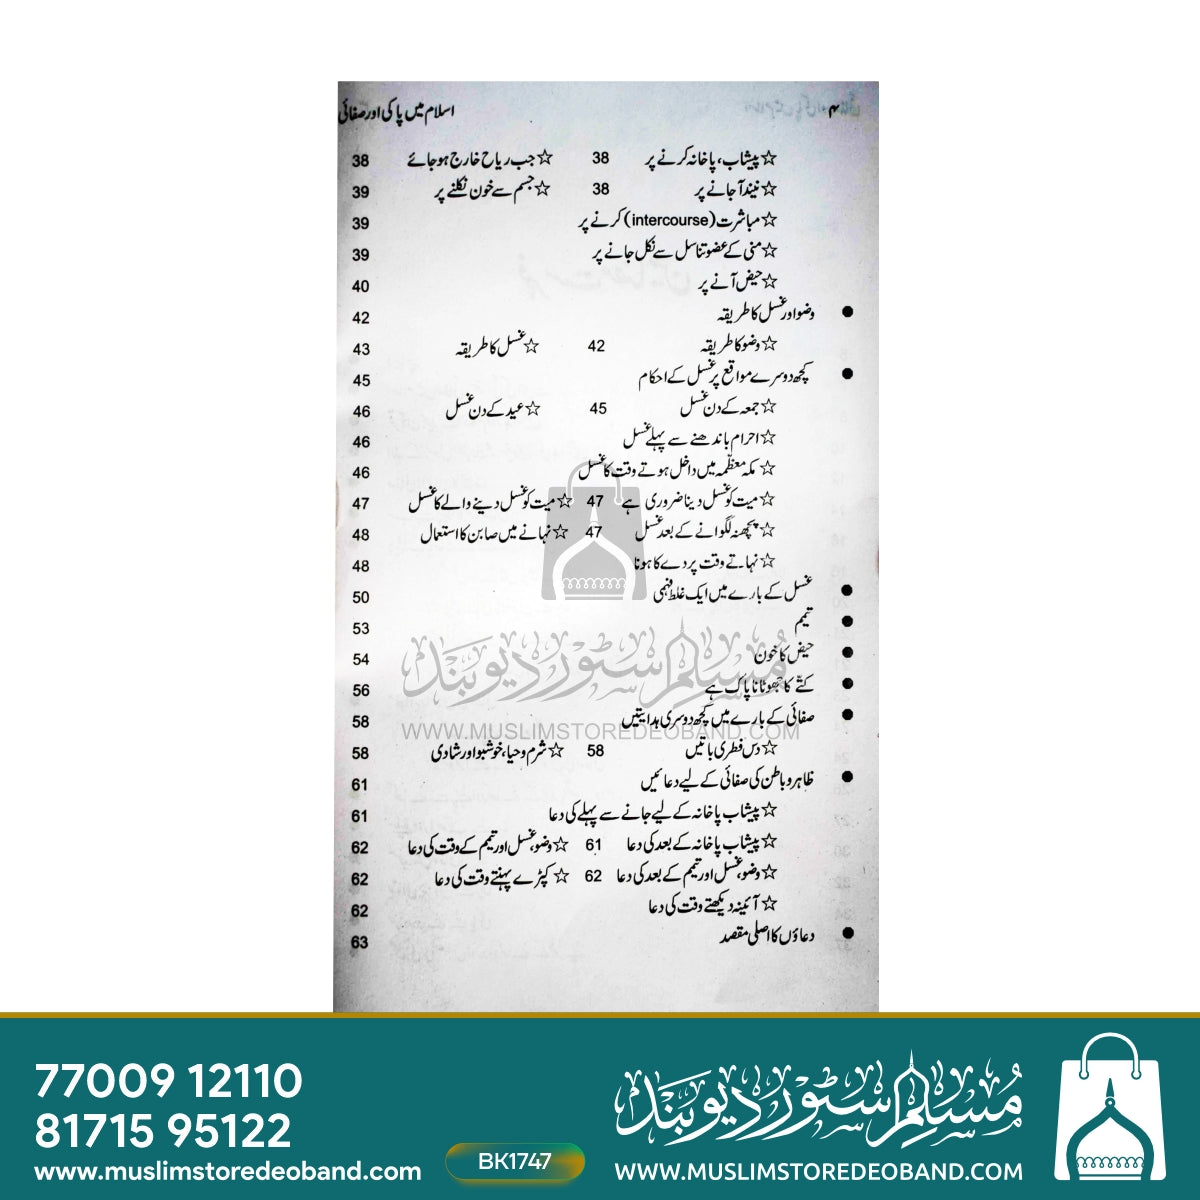 ۴ اسلام میں پاکی اور صفائی
☆ پیشاب، پاخانہ کرنے پر 38 ☆ جب ریاح خارج ہو جائے 38
☆ نیند آ جانے پر 38 ☆ جسم سے خون نکلنے پر 39
☆ مباشرت (intercourse) کرنے پر 39
☆ منی کے عضو تناسل سے نکل جانے پر 39
☆ حیض آنے پر 40
● وضو اور غسل کا طریقہ 42
☆ وضو کا طریقہ 42 ☆ غسل کا طریقہ 43
● کچھ دوسرے مواقع پر غسل کے احکام 45
☆ جمعہ کے دن غسل 45 ☆ عید کے دن غسل 46
☆ احرام باندھنے سے پہلے غسل 46
☆ مکہ معظّمہ میں داخل ہوتے وقت کا غسل 46
☆ میت کو غسل دینا ضروری ہے 47 ☆ میت کو غسل دینے والے کا غسل 47
☆ پچھنہ لگوانے کے بعد غسل 47 ☆ نہانے میں صابن کا استعمال 48
☆ نہاتے وقت پردے کا ہونا 48
● غسل کے بارے میں ایک غلط فہمی 50
● تیمم 53
● حیض کا خون 54
● کتّے کا جھوٹا ناپاک ہے 56
● صفائی کے بارے میں کچھ دوسری ہدایتیں 58
☆ دس فطری باتیں 58 ☆ شرم و حیا، خوشبو اور شادی 58
● ظاہر و باطن کی صفائی کے لیے دعائیں 61
☆ پیشاب پاخانہ کے لیے جانے سے پہلے کی دعا 61
☆ پیشاب پاخانہ کے بعد کی دعا 61 ☆ وضو، غسل اور تیمم کے وقت کی دعا 62
☆ وضو، غسل اور تیمم کے بعد کی دعا 62 ☆ کپڑے پہنتے وقت کی دعا 62
☆ آئینہ دیکھتے وقت کی دعا 62
● دعاؤں کا اصلی مقصد 63
مسلم سٹور دیوبند
WWW.MUSLIMSTOREDEOBAND.COM
77009 12110
81715 95122
www.muslimstoredeoband.com
BK1747
مسلم سٹور دیوبند
WWW.MUSLIMSTOREDEOBAND.COM